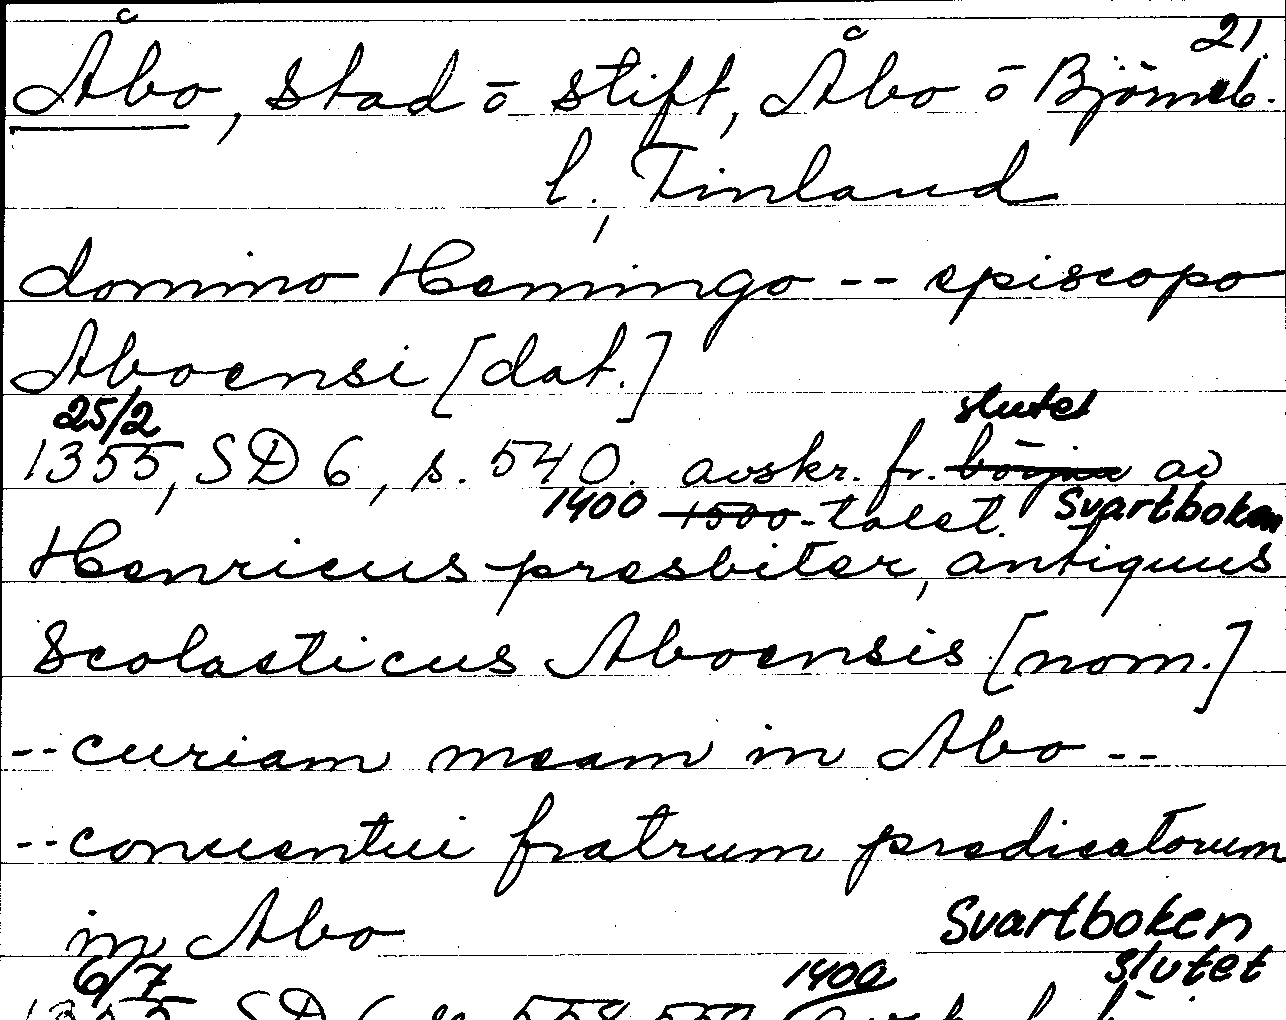 21.
Åbo, stad ō stift, Åbo ō Björneb.
l., Finland
domino Hemingo -- episcopo
Aboensi [dat.]
25/2 slutet
1355, SD 6, s. 540. avskr. fr. början av
1400 1500-talet. Svartboken
Henricus presbiter, antiquus
scolasticus Aboensis [nom.]
--curiam meam in Abo --
--conuentui fratrum predicatorum
in Abo Svartboken
6/7 1400 slutet
1355 SD 6 s. 558-559